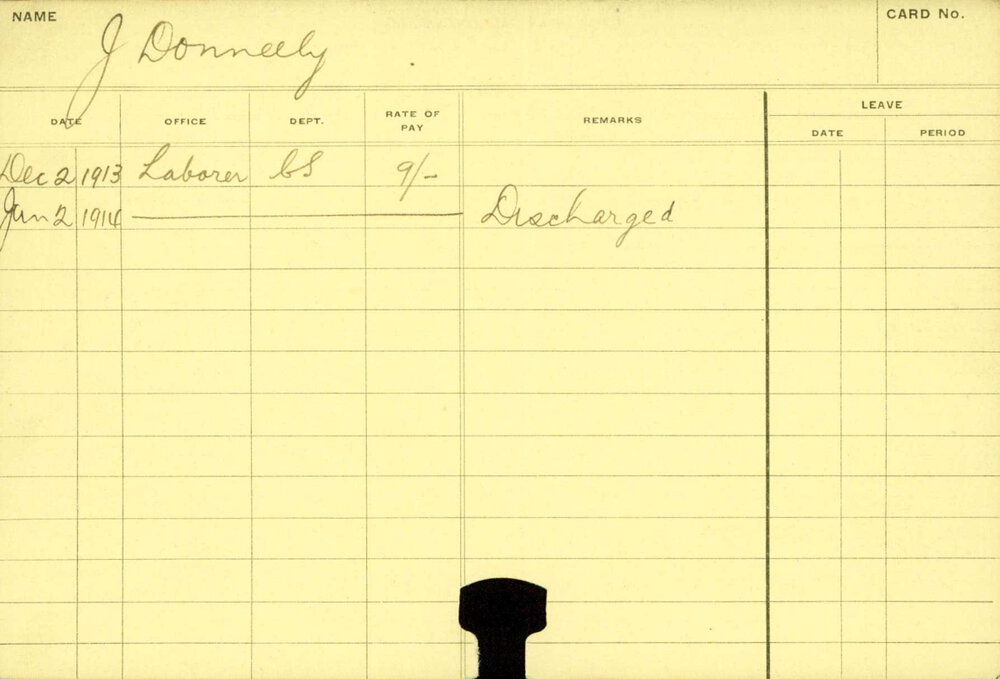 NAME
J Donneely
CARD No.
DATE OFFICE DEPT. RATE OF PAY REMARKS LEAVE
DATE PERIOD
Dec 2 1913 Laborer 9/-
Jan 2 1914 Discharged